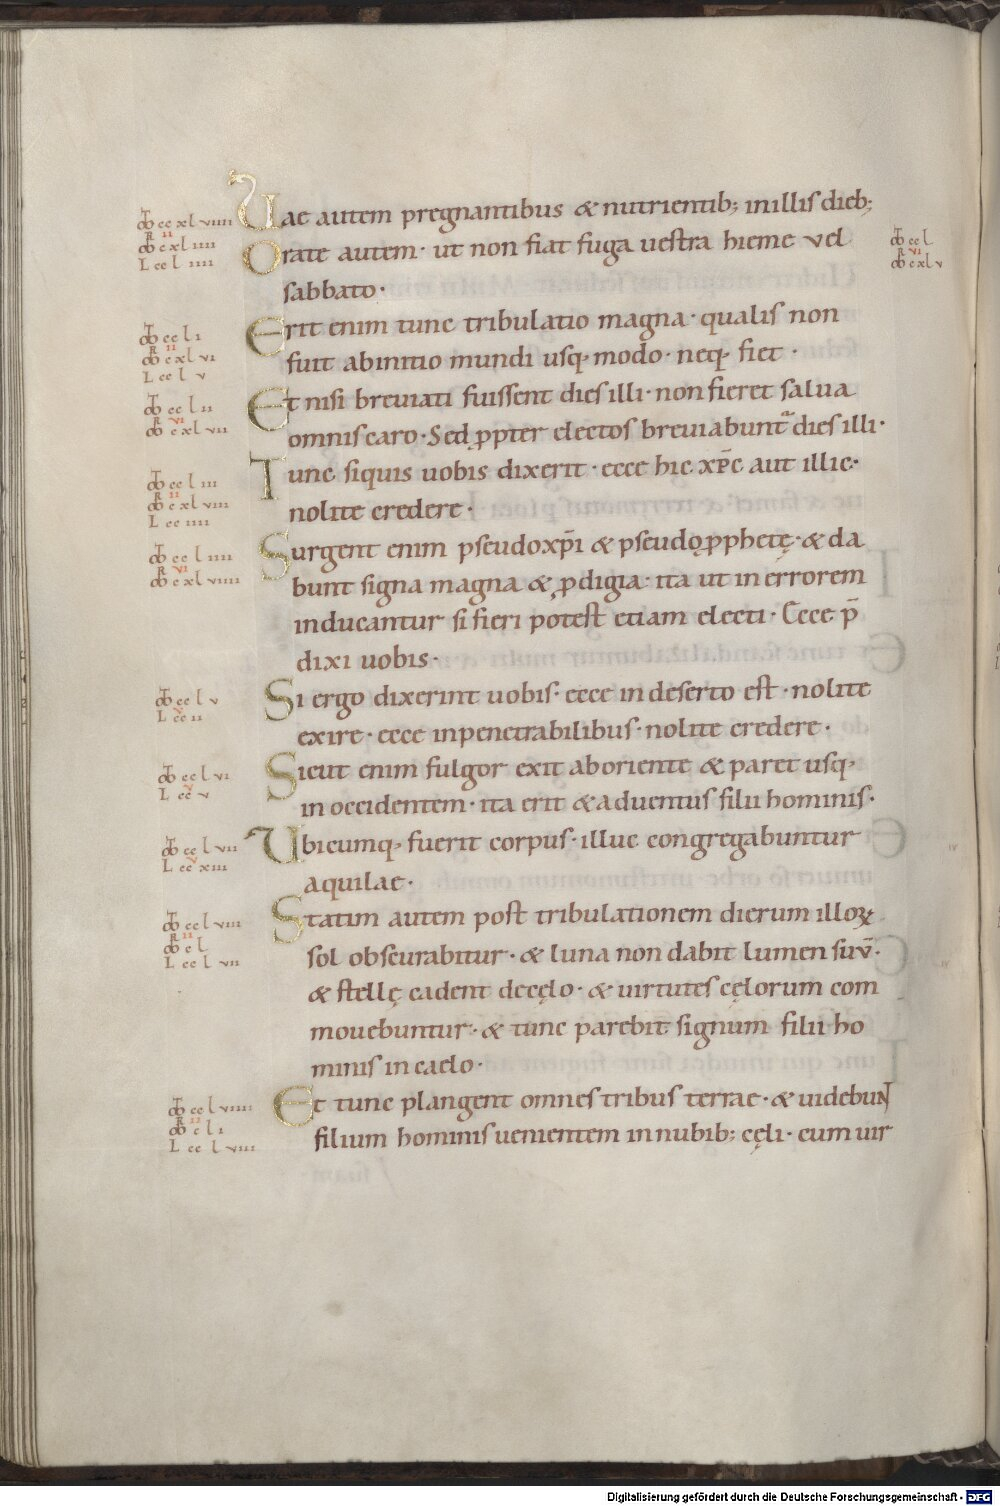 Uae autem pregnantibus & nutrientib; inillis dieb;
Orate autem· ut non fiat fuga uestra hieme vel
sabbato·
Erit enim tunc tribulatio magna· qualis non
fuit abinitio mundi usq· modo· neq· fiet·
Et nisi breuiati fuissent dies illi· non fieret salua
omnis caro· Sed ꝓpter electos breuiabunt᷑ dies illi·
Tunc siquis uobis dixerit· ecce hic xp̄c aut illic·
nolite credere·
Surgent enim pseudoxp̄i & pseudoꝓphetę· & da
bunt signa magna & ꝓdigia· ita ut in errorem
inducantur si fieri potest etiam electi· Ecce p̄
dixi uobis·
Si ergo dixerint uobis· ecce in deserto est· nolite
exire· ecce inpenetrabilibus· nolite credere·
Sicut enim fulgor exit aboriente & paret usq·
in occidentem· ita erit & aduentus filii hominis·
Ubicumq· fuerit corpus· illuc congregabuntur
aquilae·
Statim autem post tribulationem dierum illoꝝ
sol obscurabitur· & luna non dabit lumen suū·
& stellę cadent decęlo· & uirtutes cęlorum com
mouebuntur· & tunc parebit signum filii ho
minis in caelo·
Et tunc plangent omnes tribus terrae· & uidebuNT
filium hominis uenientem in nubib; cęli· cum uir
Digitalisierung gefördert durch die Deutsche Forschungsgemeinschaft - DFG